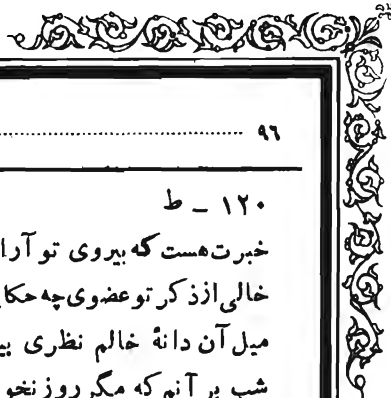 ۹۶
۱۲۰ – ط
خبرت هست که بیروی تو آرا
خالی از ذکر تو عضوی چه حکا
میل آن دانهٔ خالم نظری بی
شب بر آنم که مگر روز نخو